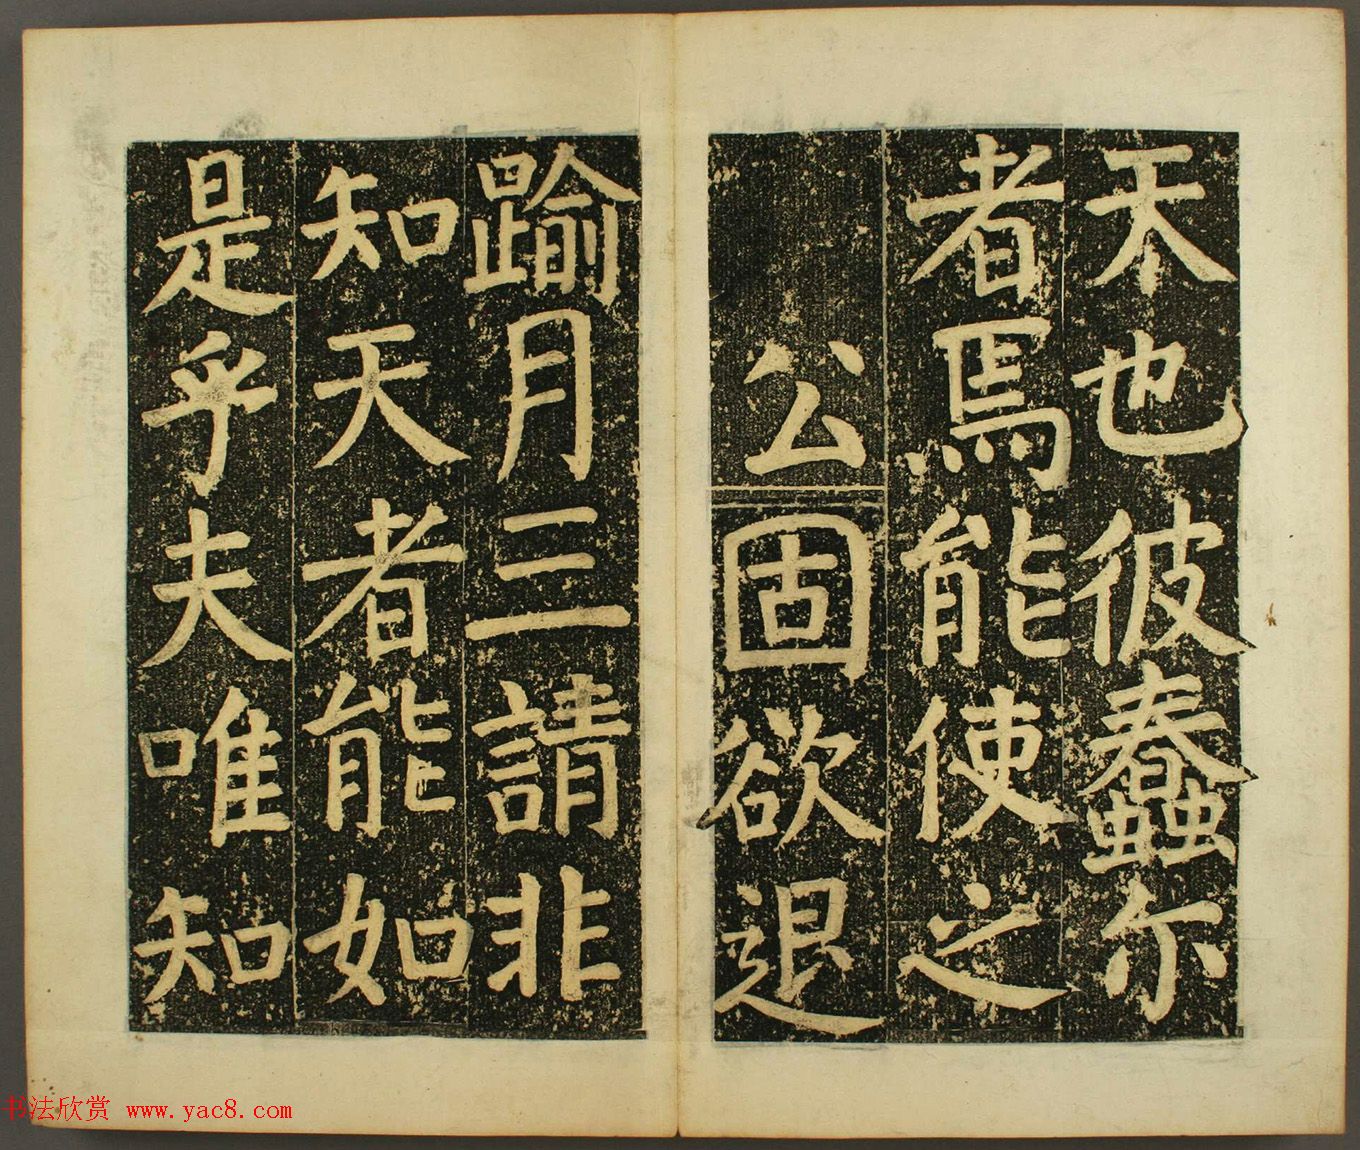 天也彼蠢尒
者焉能使之
公固欲退
踰月三請非
知天者能如
是乎夫唯知
书法欣赏 www.yac8.com